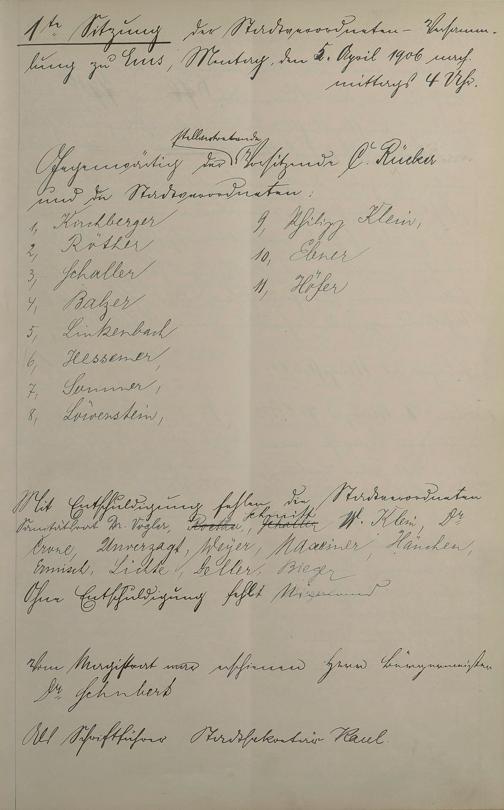 1te Sitzung der Stadtverordneten-Versamm-
lung zu Ems, Montag, den 5. April 1906 nach-
mittags 4 Uhr.
stellvertretende
Gegenwärtig der Vorsitzende C. Rücker
und die Stadtverordneten:
1, Kirchberger
2, Röther
3, Schaller
4, Balzer
5, Linkenbach
6, Hessemer,
7, Sommer,
8, Löwenstein,
9, Philipp Klein,
10, Ebner
11, Höfer
Mit Entschuldigung fehlen die Stadtverordneten
Schmitt
Sanitätsrat Dr. Vogler, Schaller W. Klein, Dr.
Crone, Unverzagt, Weyer, Maxeiner, Hänchen,
Ermisch, Lichte, Deller, Bieger
Ohne Entschuldigung fehlt Niemand
Vom Magistrat war erschienen Herr Bürgermeister
Dr. Schubert
Als Schriftführer Stadtsekretär Kaul.